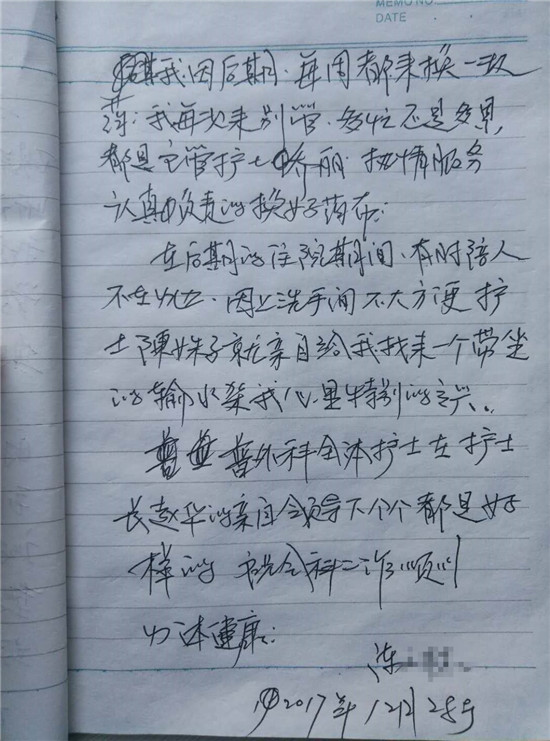 MEMO NO.
DATE
我因后期每周都来换一次
药:我每次来别管多忙还是多累,
都是主管护士乔丽热情服务
认真负责的换好药布:
在后期的住院期间、有时陪人
不在以上因上洗手间不大方便护
士陈姝子就亲自给我找来一个带坐
的输水架我心里特别的高兴.
普外科全体护士在护士
长赵华的亲自领导下个个都是好
样的 祝全科工作顺利
身体健康:
2017年12月28号